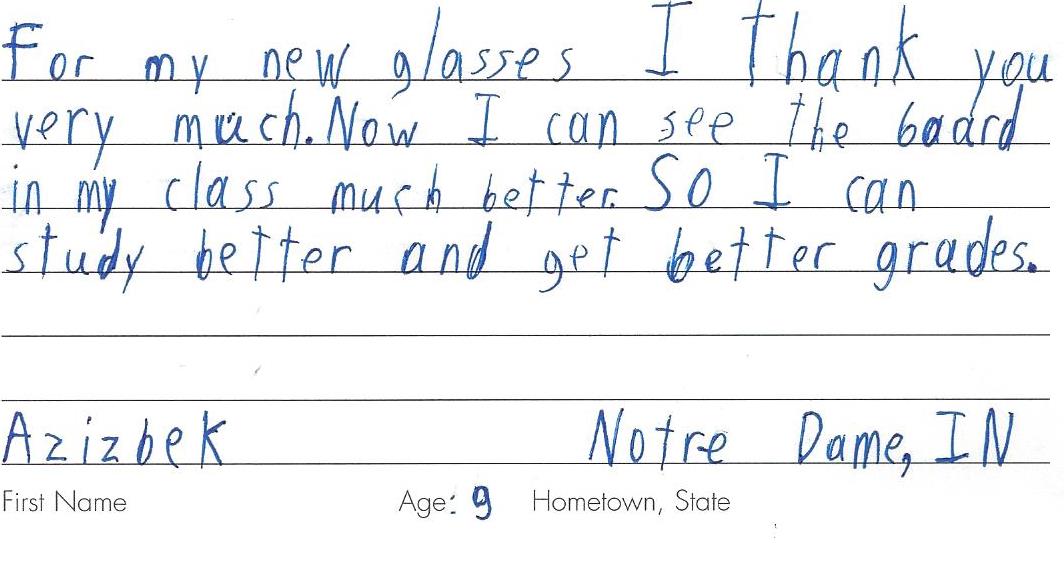 For my new glasses I thank you
very much. Now I can see the board
in my class much better. So I can
study better and get better grades.
Azizbek Notre Dame, IN
First Name Age: 9 Hometown, State